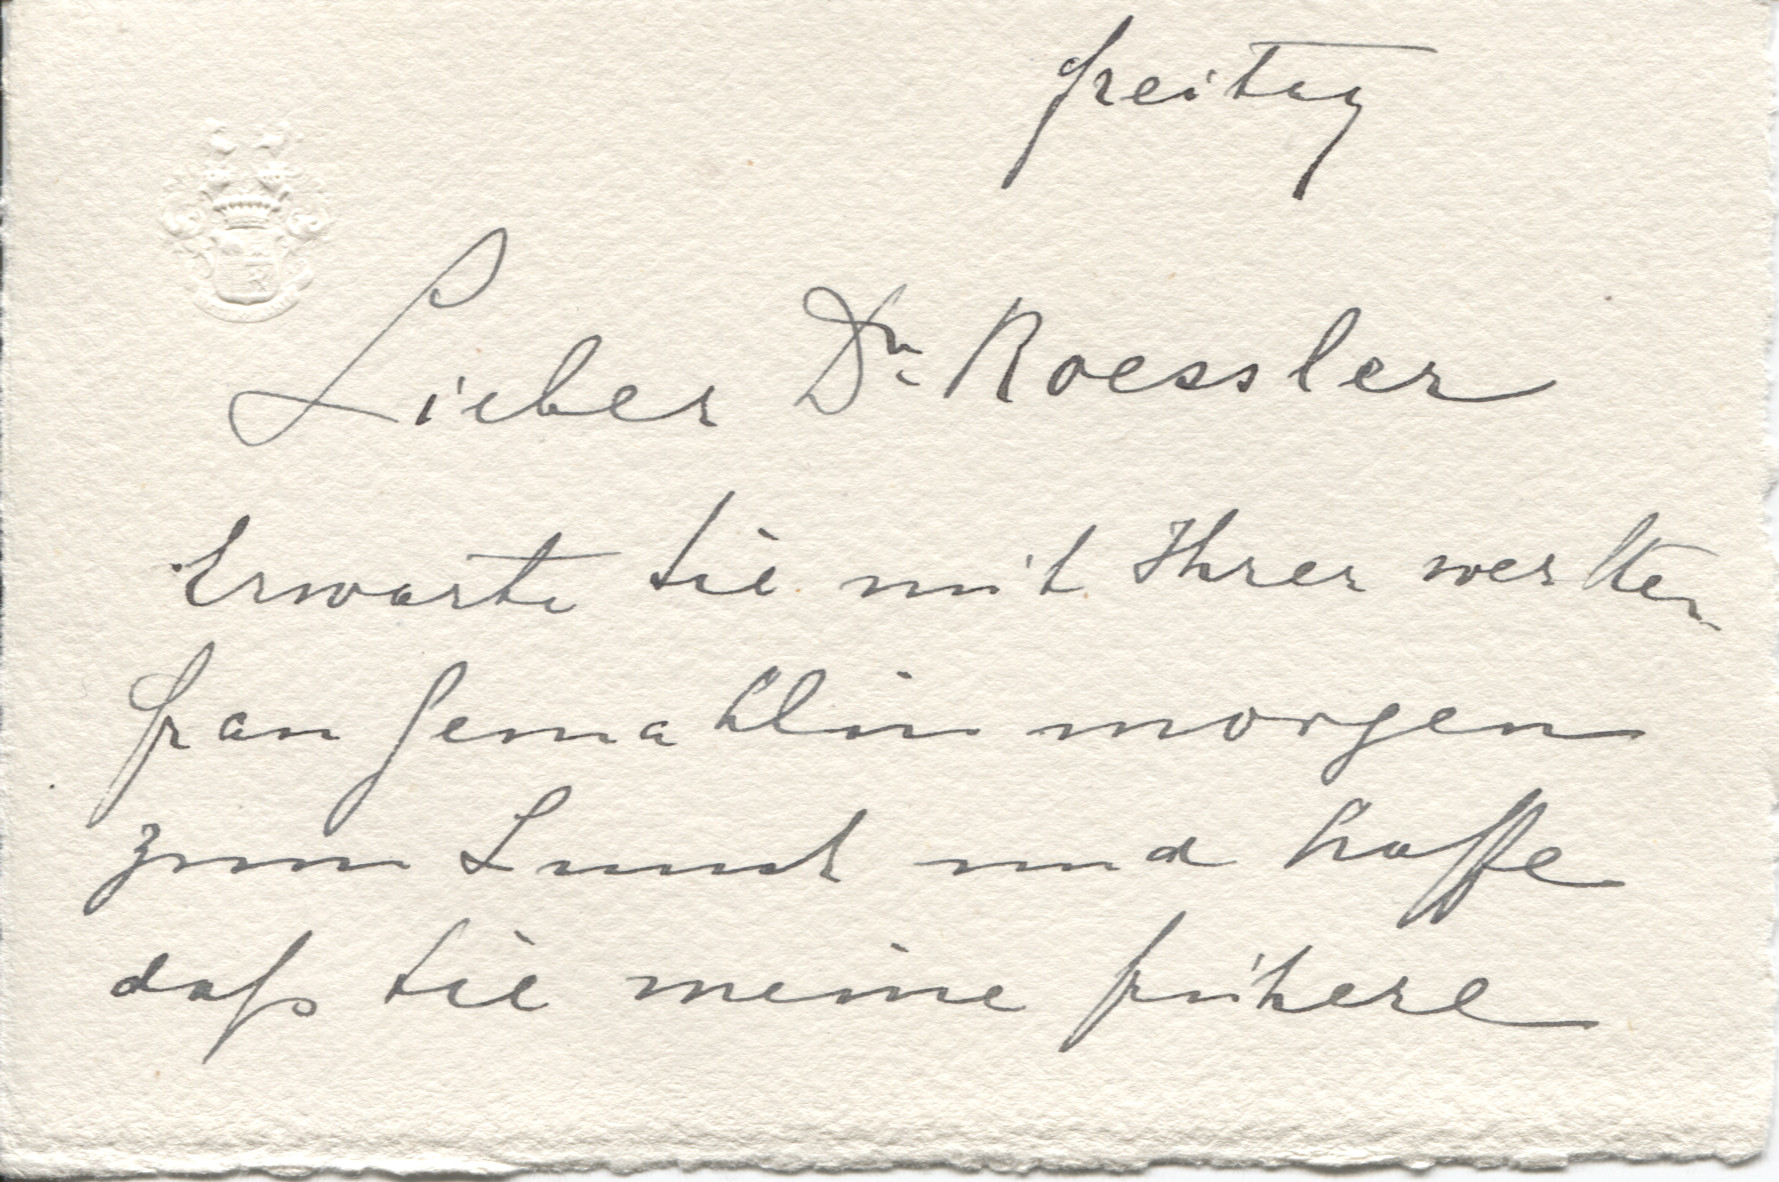 Freitag
Lieber Dr. Roessler
Erwarte Sie mit Ihrer werten
Frau Gemahlin morgen
zum Lunch und hoffe
daß Sie meine frühere